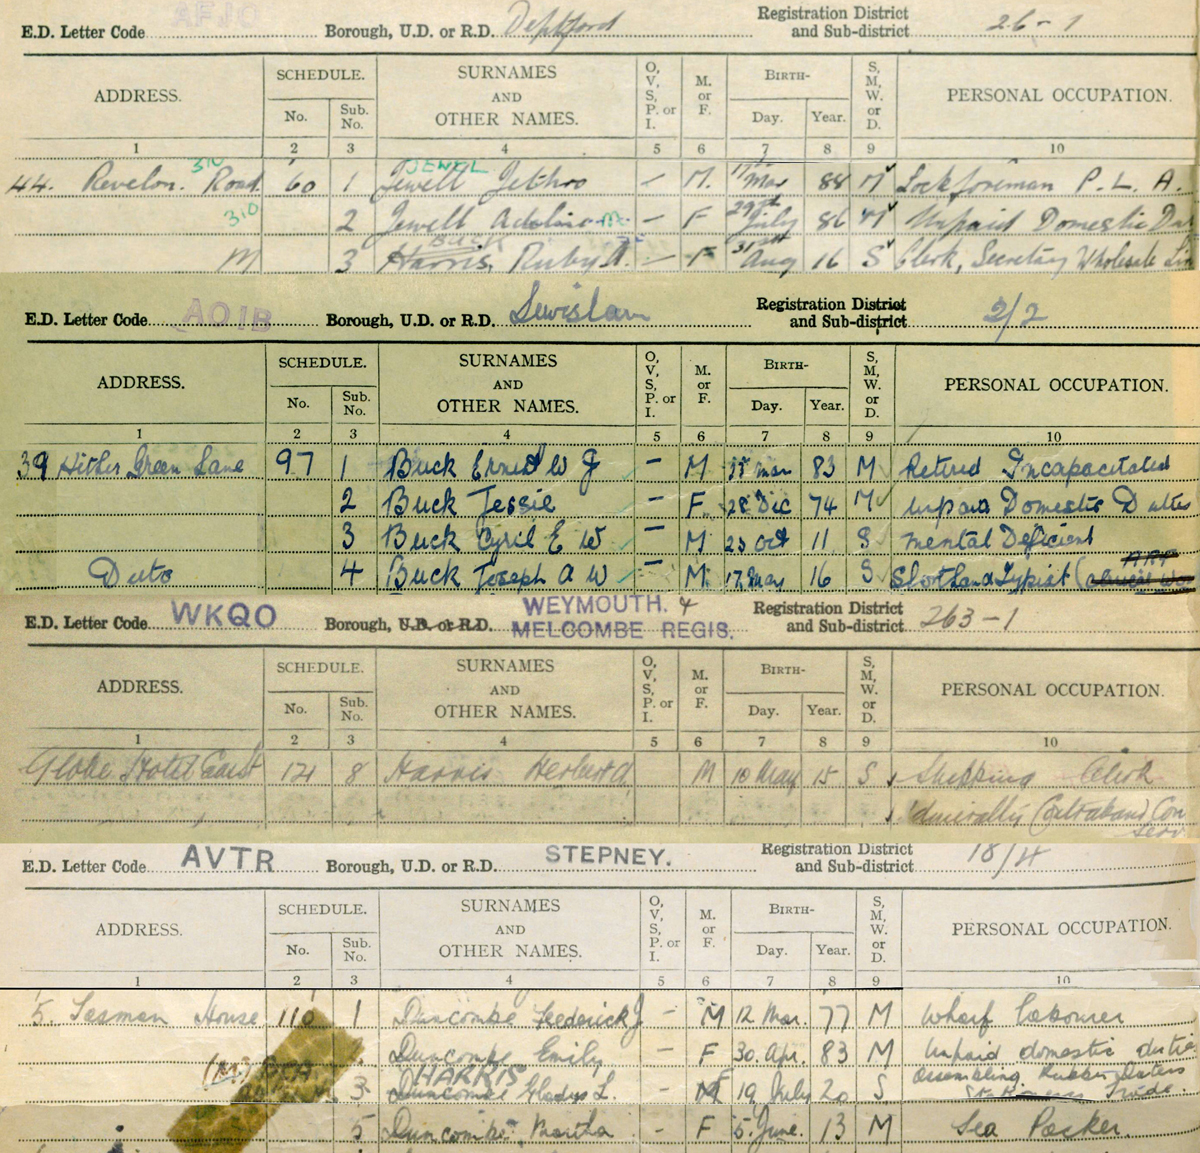 E.D. Letter Code AFJO Borough, U.D. or R.D. Deptford Registration District and Sub-district 26-1
ADDRESS. SCHEDULE. No. Sub. No. SURNAMES AND OTHER NAMES. O, V, S, P. or I. M. or F. BIRTH- Day. Year. S, M, W. or D. PERSONAL OCCUPATION.
1 2 3 4 5 6 7 8 9 10
310 JEWEL
44. Revelon. Road. 60 1 Jewell Jethro - M. 17th Mar 88 M Lockforeman P. L. A.
310 2 Jewell Adeline M. - F 29th July 86 M Unpaid Domestic
BUCK
M 3 Harris, Ruby A. - F 31st Aug 16 S Clerk, Secretary Wholesale
E.D. Letter Code AOIB Borough, U.D. or R.D. Lewisham Registration District and Sub-district 2/2
ADDRESS. SCHEDULE. No. Sub. No. SURNAMES AND OTHER NAMES. O, V, S, P. or I. M. or F. BIRTH- Day. Year. S, M, W. or D. PERSONAL OCCUPATION.
1 2 3 4 5 6 7 8 9 10
39 Hither Green Lane 97 1 Buck Ernest W J - M Mar 83 M Retired Incapacitated
2 Buck Jessie - F. 28 Dec 74 M Unpaid Domestic Duties
3 Buck Cyril E W - M 23 Oct 11 S Mental Deficient
ARP
Ditto 4 Buck Joseph A W - M. 17 May 16 S Shorthand Typist
E.D. Letter Code WKQO Borough, U.D. or R.D. WEYMOUTH. & MELCOMBE REGIS. Registration District and Sub-district 263-1
ADDRESS. SCHEDULE. No. Sub. No. SURNAMES AND OTHER NAMES. O, V, S, P. or I. M. or F. BIRTH- Day. Year. S, M, W. or D. PERSONAL OCCUPATION.
1 2 3 4 5 6 7 8 9 10
Globe Hotel East 121 8 Harris Herbert A M 10 May 15 S Shipping Clerk
Admiralty Contraband Con
Serv
E.D. Letter Code AVTR Borough, U.D. or R.D. STEPNEY. Registration District and Sub-district 18/4
ADDRESS. SCHEDULE. No. Sub. No. SURNAMES AND OTHER NAMES. O, V, S, P. or I. M. or F. BIRTH- Day. Year. S, M, W. or D. PERSONAL OCCUPATION.
1 2 3 4 5 6 7 8 9 10
5. Tasman House 110 1 Duncombe Frederick J - M 12 Mar. 77 M Wharf Labourer
Duncombe Emily - F 30. Apr. 83 M Unpaid domestic duties
HARRIS F Assembling Rubber Daters
3 Duncombe Gladys L. M 19 July 20 S. Stationers Trade.
5 Duncombe, Martha - F 5. June. 13 M Tea Packer.